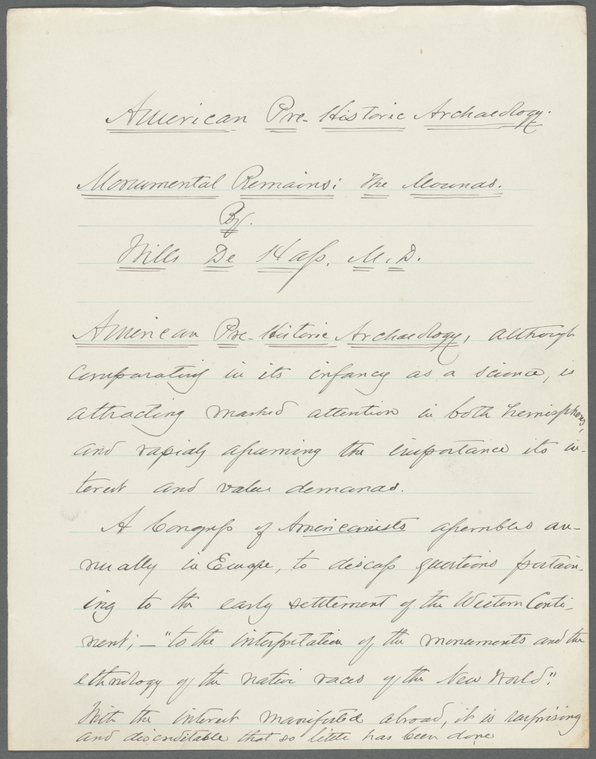 American Pre-Historic Archaeology.
Monumental Remains: The Mounds.
By.
Wills De Hass. M.D.
American Pre-Historic Archaeology, although
comparatively in its infancy as a science, is
attracting marked attention in both hemispheres,
and rapidly assuming the importance its in-
terest and value demands.
A Congress of Americanists assembles an-
nually in Europe, to discuss questions pertain-
ing to the early settlement of the Western Conti-
nent; — "to the interpretation of the monuments and the
ethnology of the native races of the New World".
With the interest manifested abroad, it is surprising
and discreditable that so little has been done